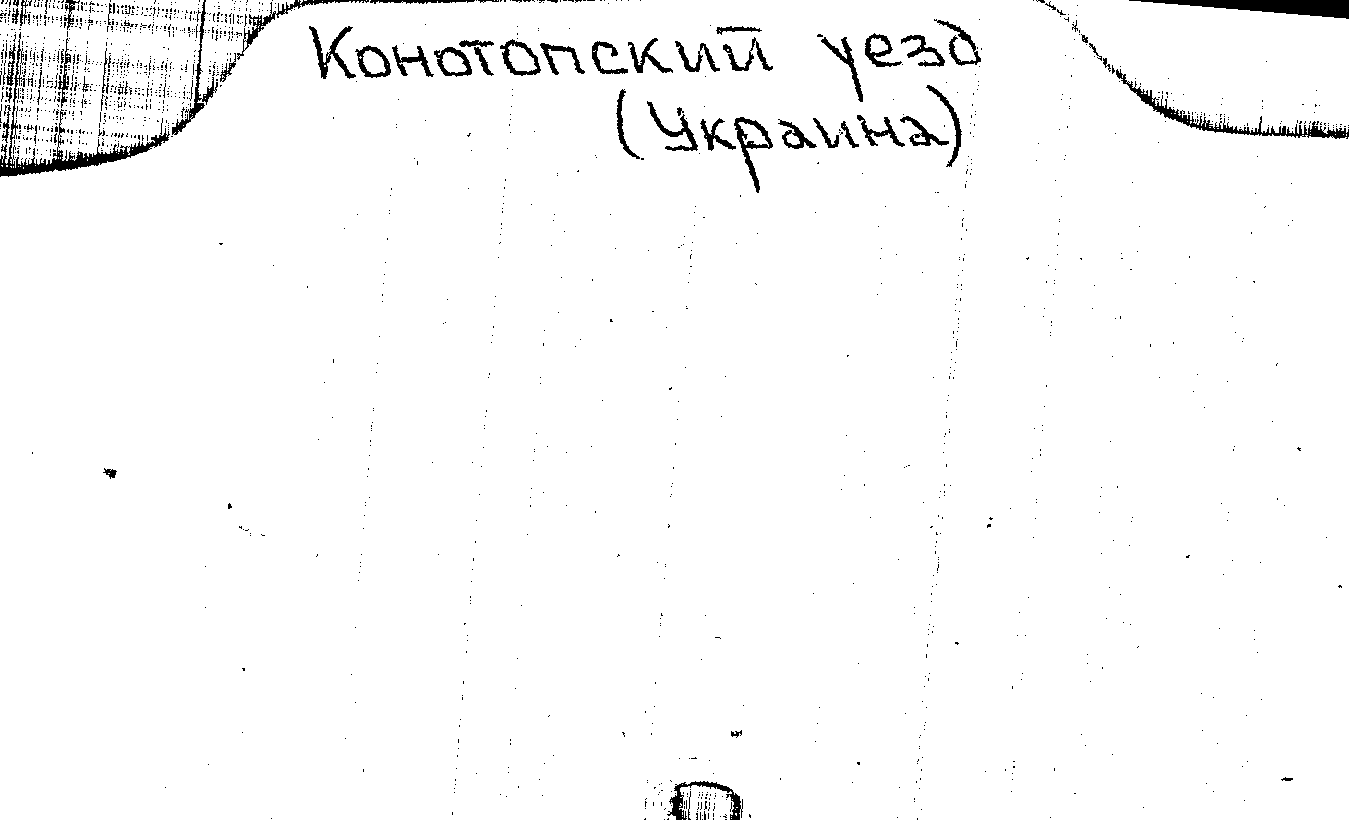 Конотопский уезд
(Украина)